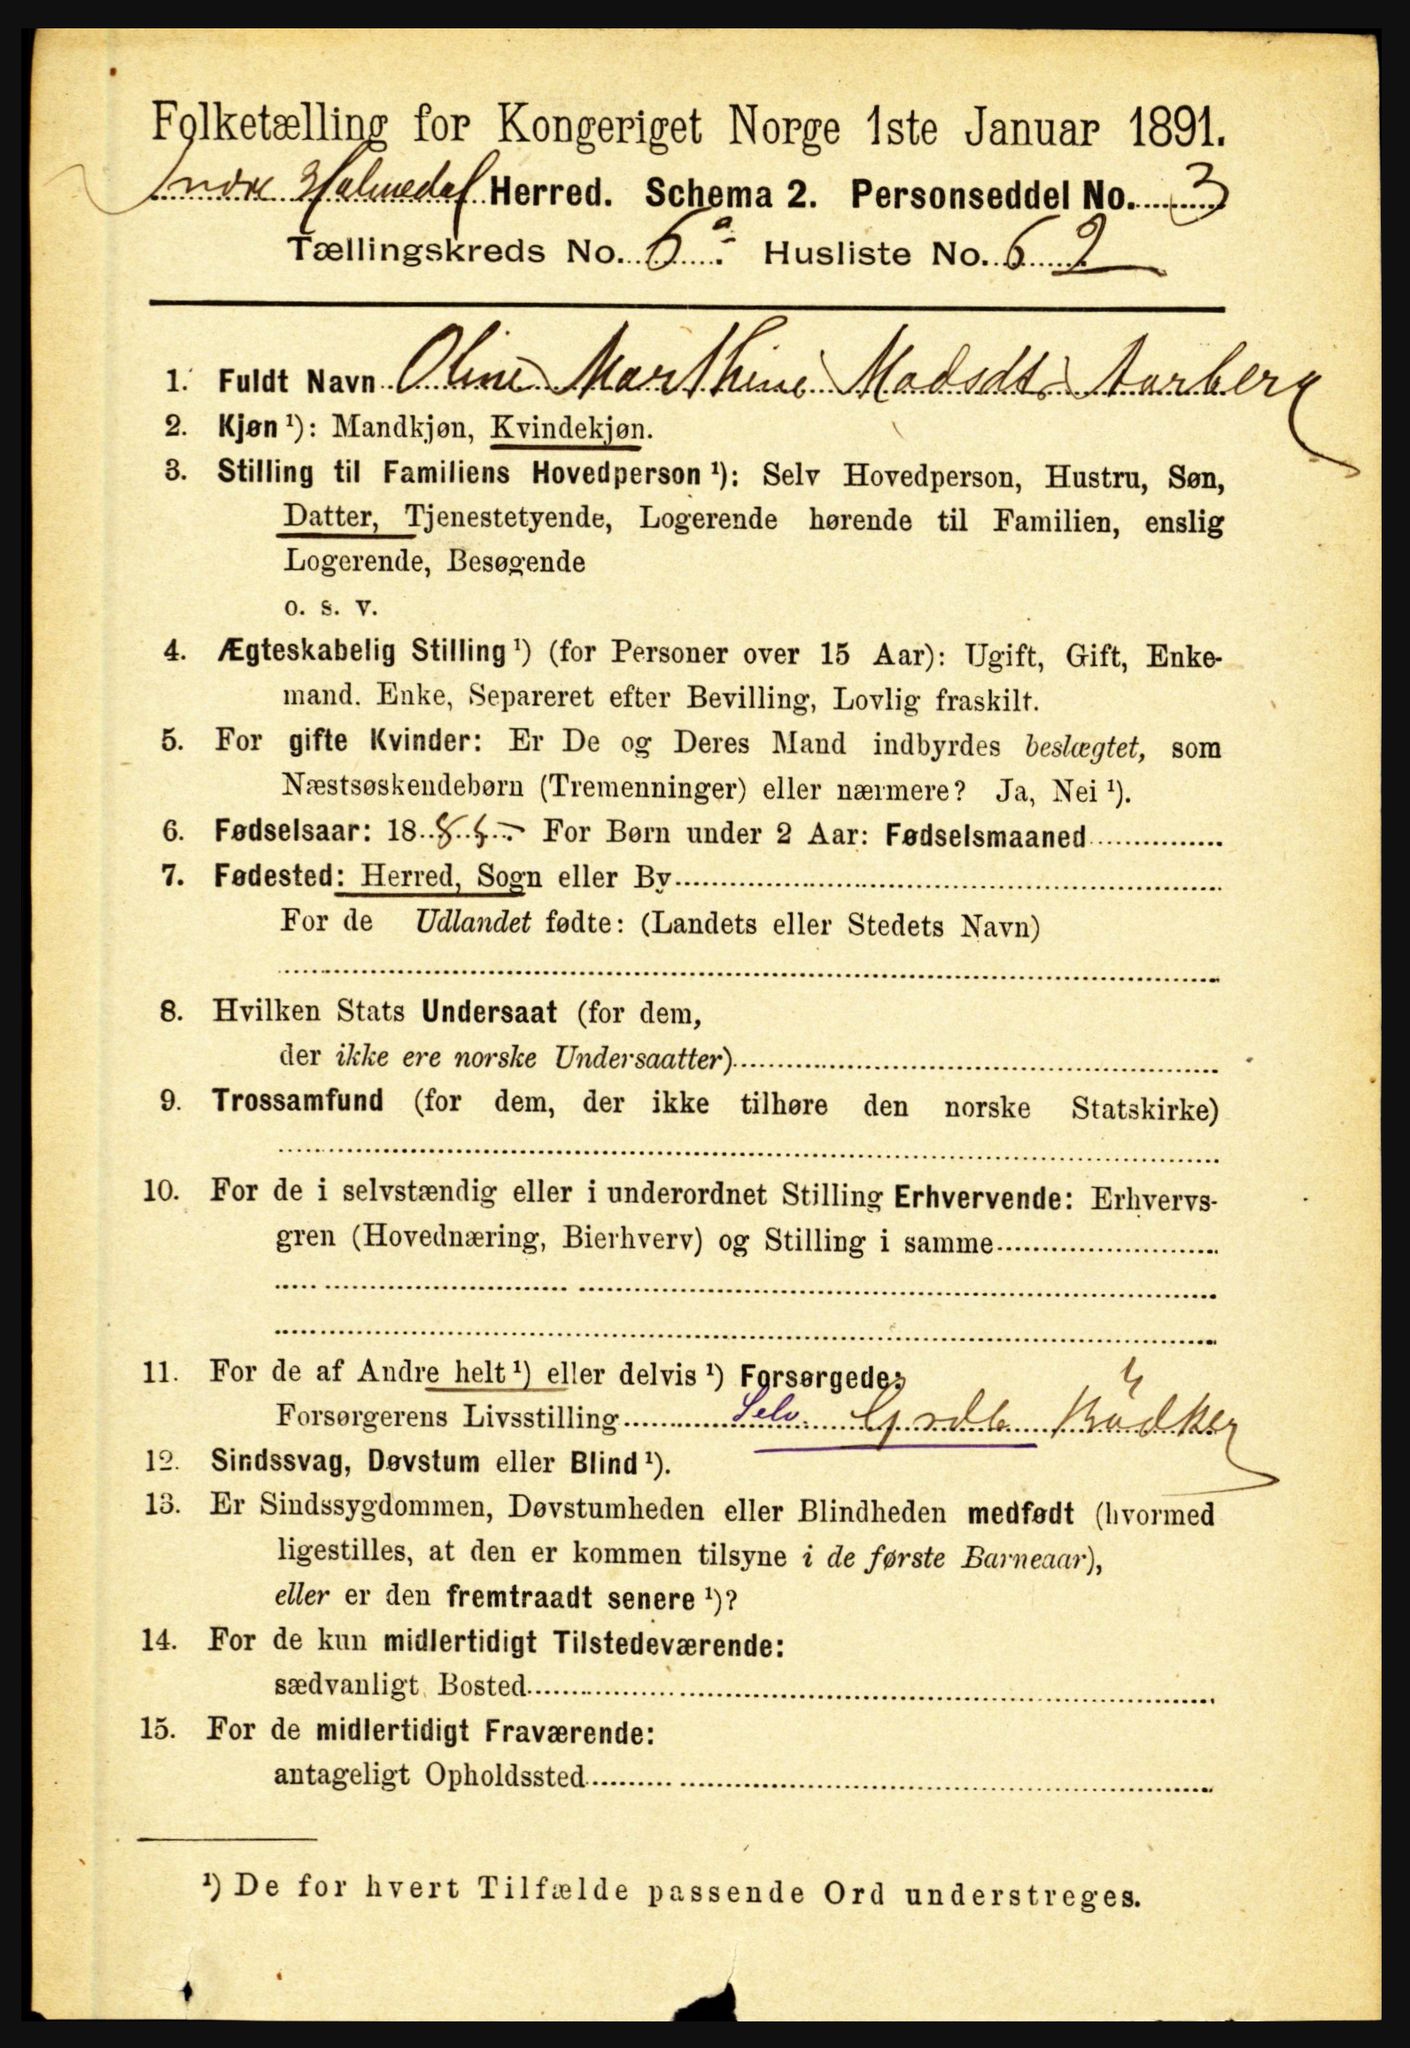 Folketælling for Kongeriget Norge 1ste Januar 1891.
Indre Holmedal Herred. Schema 2. Personseddel No. 3
Tællingskreds No. 6a. Husliste No. 62
1. Fuldt Navn Oline Marthine Madsdt. Aarberg
2. Kjøn ¹): Mandkjøn, Kvindekjøn.
3. Stilling til Familiens Hovedperson ¹): Selv Hovedperson, Hustru, Søn,
Datter, Tjenestetyende, Logerende hørende til Familien, enslig
Logerende, Besøgende
o. s. v.
4. Ægteskabelig Stilling ¹) (for Personer over 15 Aar): Ugift, Gift, Enke-
mand. Enke, Separeret efter Bevilling, Lovlig fraskilt.
5. For gifte Kvinder: Er De og Deres Mand indbyrdes beslægtet, som
Næstsøskendebørn (Tremenninger) eller nærmere? Ja, Nei ¹).
6. Fødselsaar: 1885 For Børn under 2 Aar: Fødselsmaaned
7. Fødested: Herred, Sogn eller By
For de Udlandet fødte: (Landets eller Stedets Navn)
8. Hvilken Stats Undersaat (for dem,
der ikke ere norske Undersaatter)
9. Trossamfund (for dem, der ikke tilhøre den norske Statskirke)
10. For de i selvstændig eller i underordnet Stilling Erhvervende: Erhvervs-
gren (Hovednæring, Bierhverv) og Stilling i samme
11. For de af Andre helt ¹) eller delvis ¹) Forsørgede:
Forsørgerens Livsstilling Selv. Grdb Bödker
12. Sindssvag, Døvstum eller Blind ¹).
13. Er Sindssygdommen, Døvstumheden eller Blindheden medfødt (hvormed
ligestilles, at den er kommen tilsyne i de første Barneaar),
eller er den fremtraadt senere ¹)?
14. For de kun midlertidigt Tilstedeværende:
sædvanligt Bosted
15. For de midlertidigt Fraværende:
antageligt Opholdssted
¹) De for hvert Tilfælde passende Ord understreges.